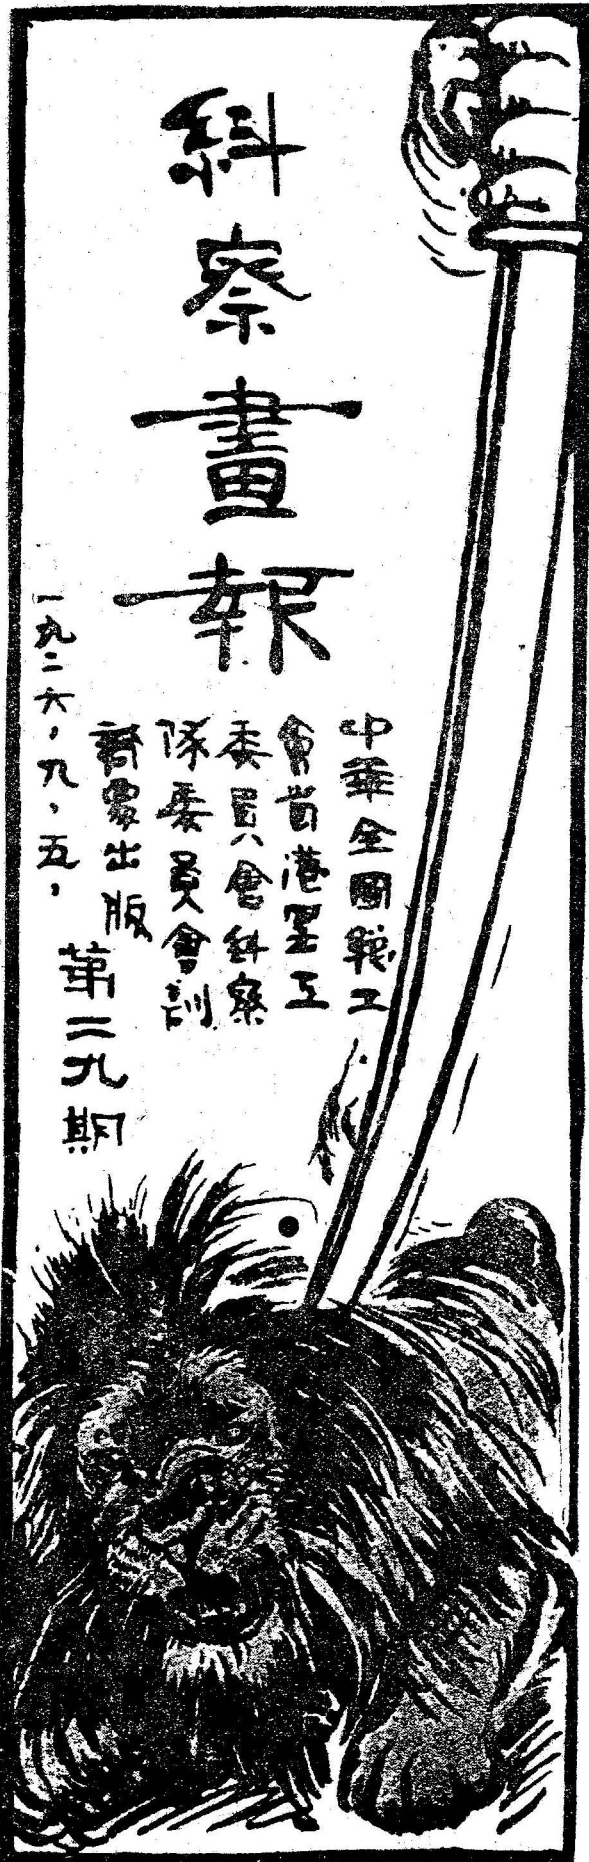 糾察畫報
中華全國總工
會省港罷工
委員會糾察
隊委員會訓
出版
第二九期
一九二六，九，五，